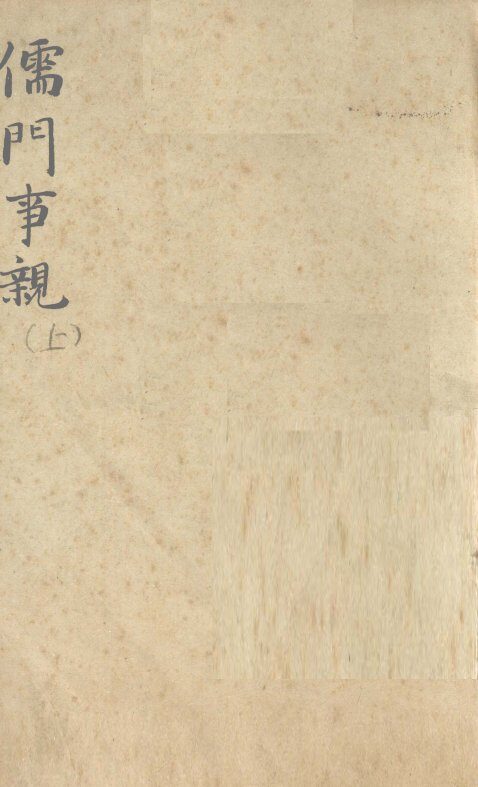 儒門事親
(上)